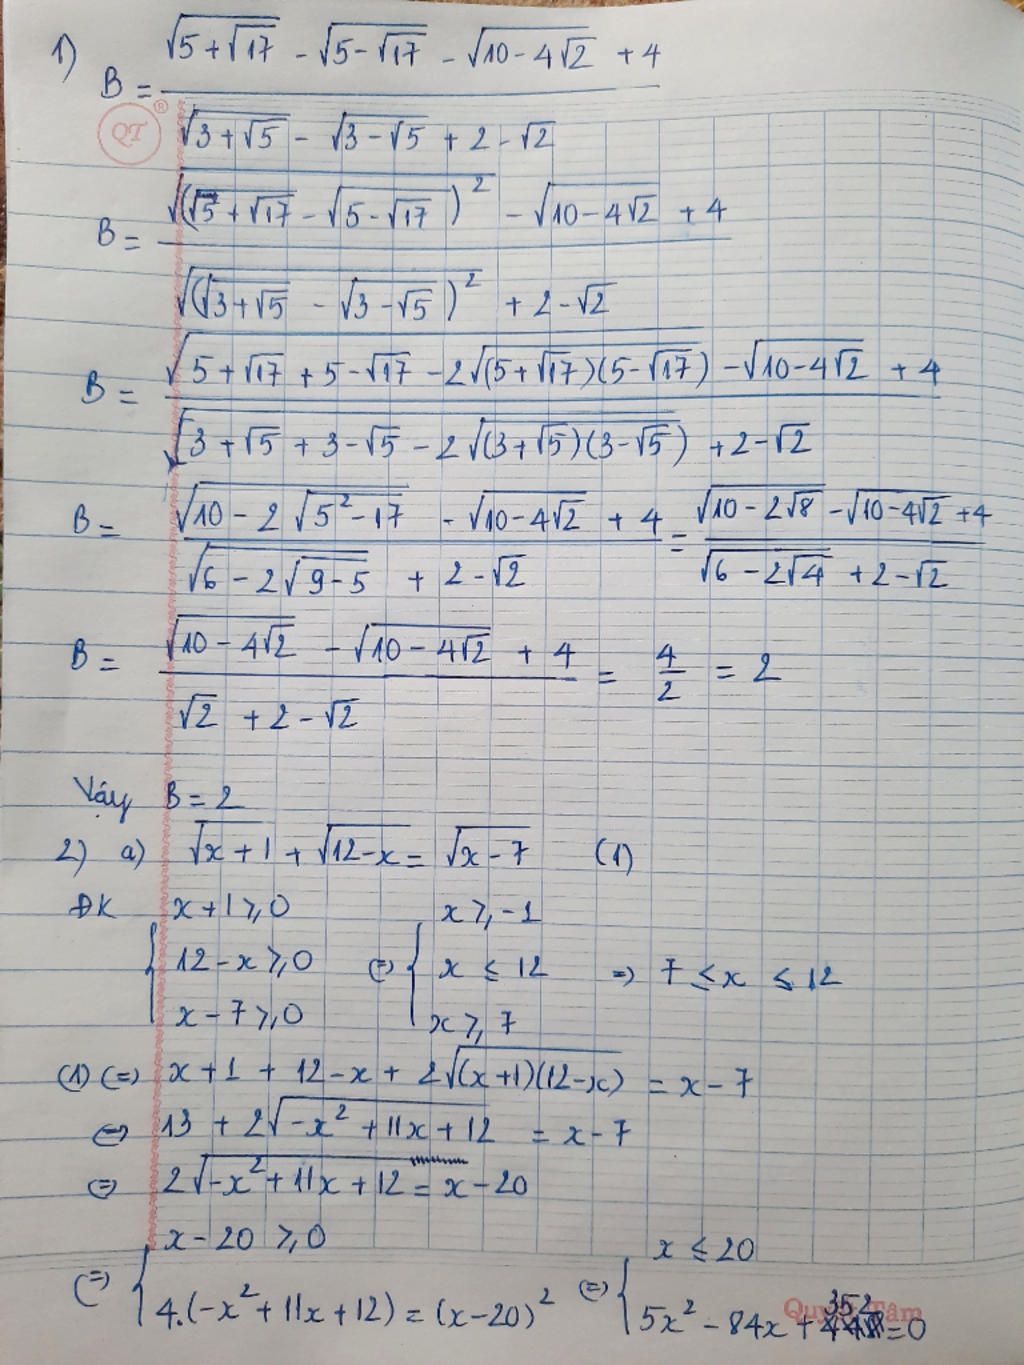 1) B = (√(5+√17) - √(5-√17) - √(10-4√2) + 4) / (√(3+√5) - √(3-√5) + 2 - √2)
QT®
B = (√((√(5+√17) - √(5-√17))²) - √(10-4√2) + 4) / (√((√(3+√5) - √(3-√5))²) + 2-√2)
B = (√(5+√17 + 5-√17 - 2√((5+√17)(5-√17))) - √(10-4√2) + 4) / (√(3+√5 + 3-√5 - 2√((3+√5)(3-√5))) + 2-√2)
B = (√(10-2√(5²-17)) - √(10-4√2) + 4) / (√(6-2√(9-5)) + 2-√2) = (√(10-2√8) - √(10-4√2) + 4) / (√(6-2√4) + 2-√2)
B = (√(10-4√2) - √(10-4√2) + 4) / (√2 + 2-√2) = 4/2 = 2
Vậy B = 2
2) a) √(x+1) + √(12-x) = √(x-7) (1)
ĐK { x+1 ⩾ 0 { x ⩾ -1
12-x ⩾ 0 (=) x ≤ 12 => 7 ≤ x ≤ 12
x-7 ⩾ 0 x ⩾ 7
(1) (=) x+1 + 12-x + 2√((x+1)(12-x)) = x-7
(=) 13 + 2√(-x²+11x+12) = x-7
(=) 2√(-x²+11x+12) = x-20
(=) { x-20 ⩾ 0 (=) { x ≤ 20
4.(-x²+11x+12) = (x-20)² 5x² - 84x + 352 = 0